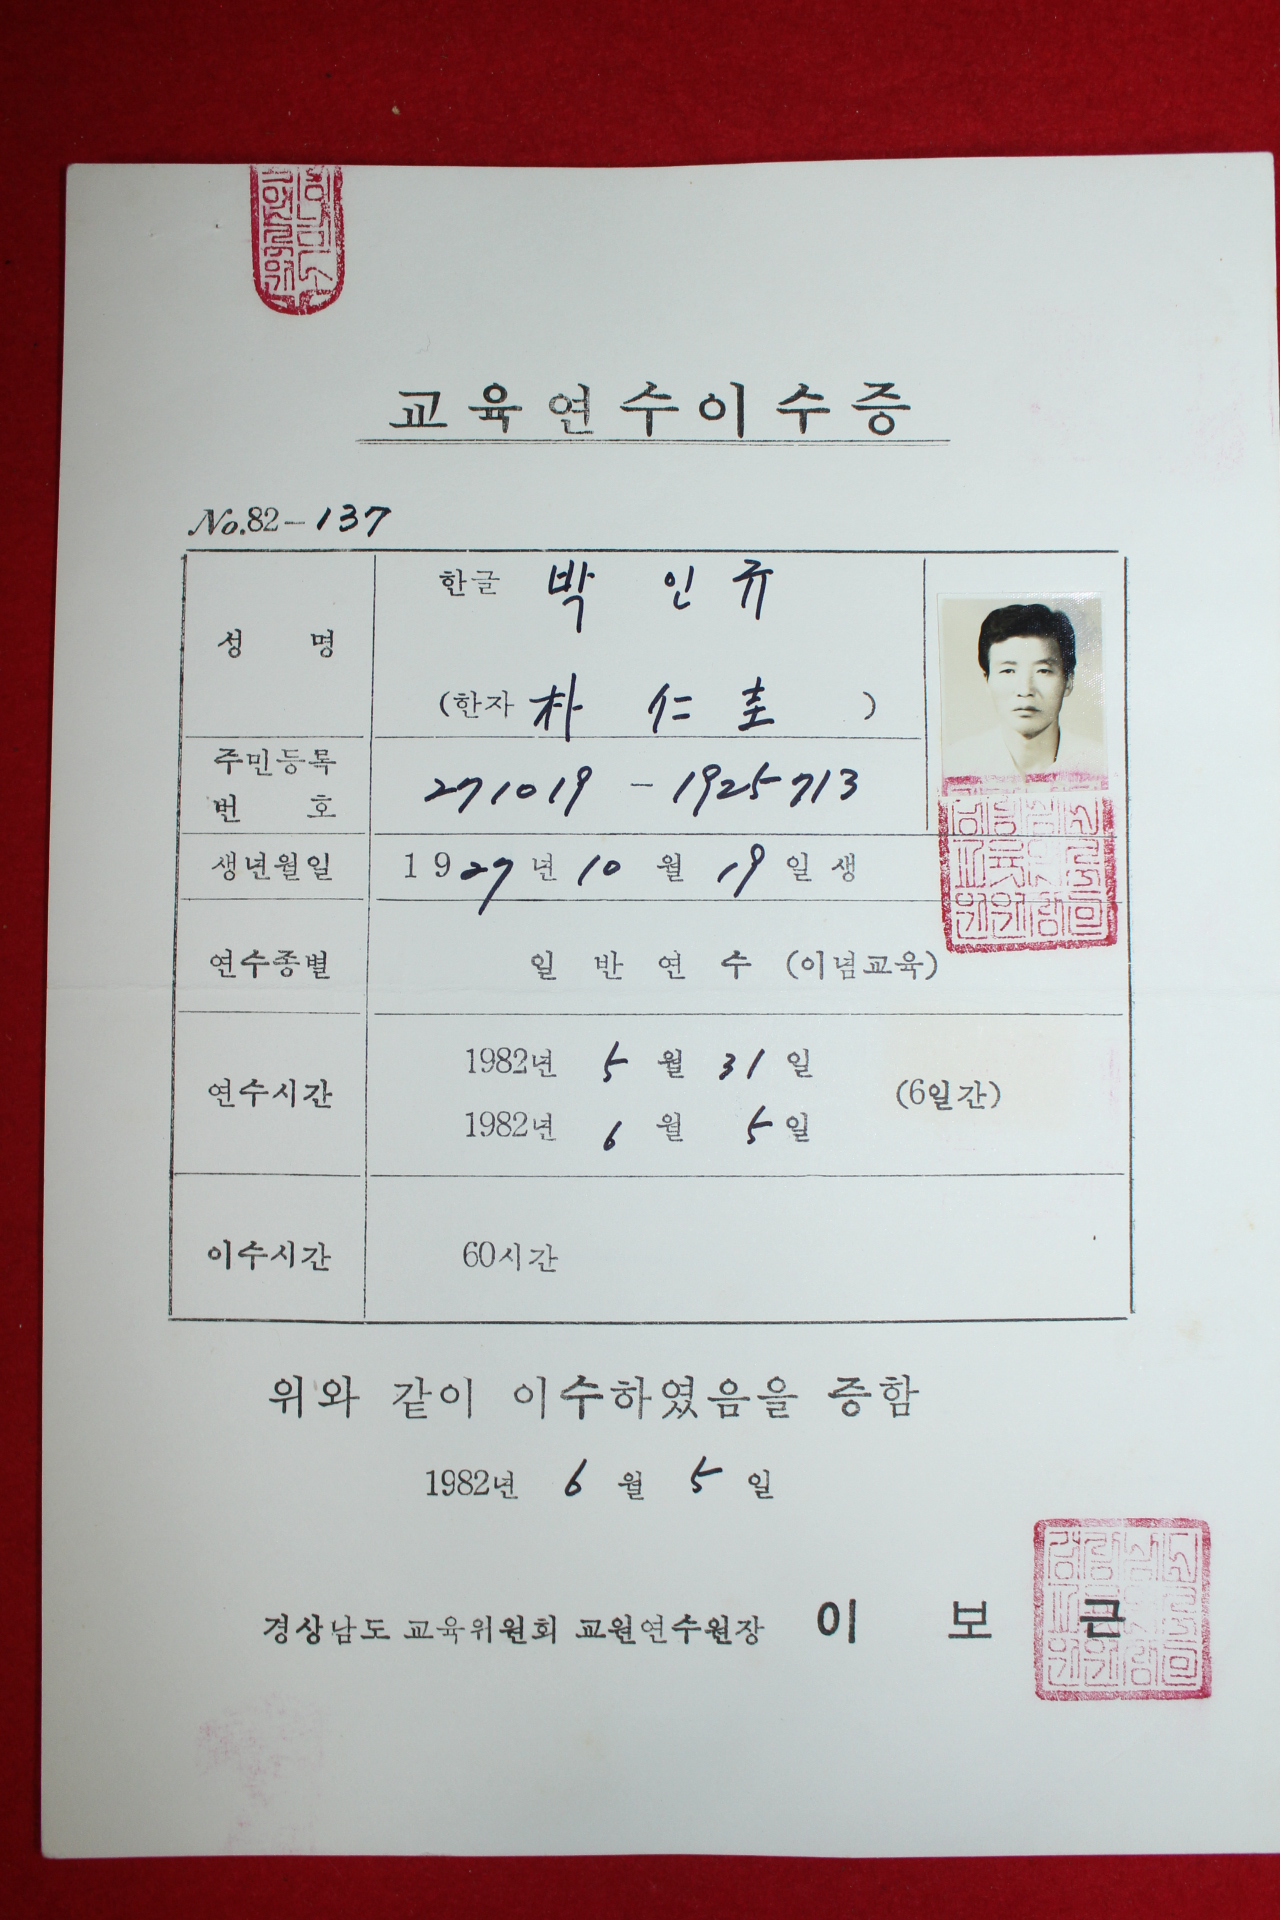 교육연수이수증
No.82-137
성 명
한글 박 인 규
(한자 朴 仁 圭 )
주민등록
번 호
271019-1925713
생년월일
1927년 10월 19일생
연수종별
일 반 연 수 (이념교육)
연수시간
1982년 5월 31일
1982년 6월 5일
(6일간)
이수시간
60시간
위와 같이 이수하였음을 증함
1982년 6월 5일
경상남도 교육위원회 교원연수원장 이 보 근